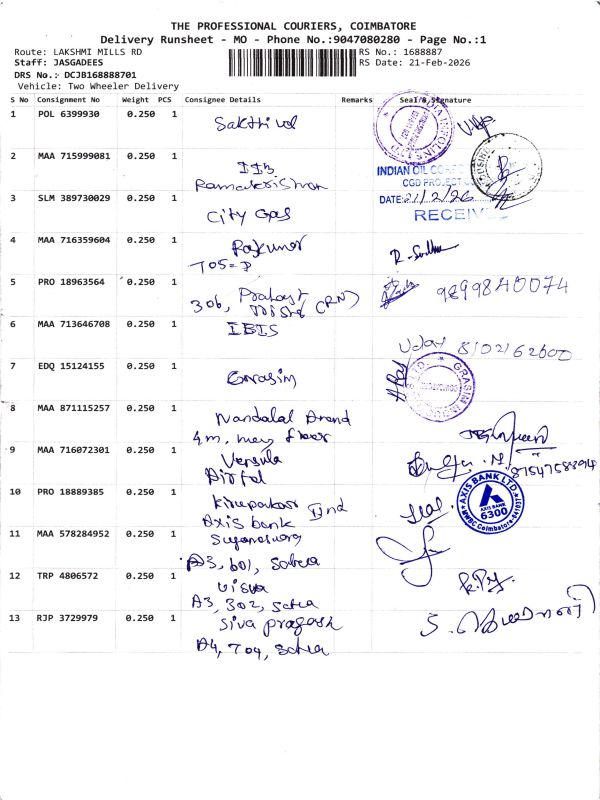 THE PROFESSIONAL COURIERS, COIMBATORE
Delivery Runsheet - MO - Phone No.:9047080280 - Page No.:1
Route: LAKSHMI MILLS RD
RS No.: 1688887
Staff: JASGADEES
RS Date: 21-Feb-2026
DRS No.: DCJB168888701
Vehicle: Two Wheeler Delivery
S No Consignment No Weight PCS Consignee Details Remarks Seal & Signature
1 POL 6399930 0.250 1
Sakthivel
2 MAA 715999081 0.250 1
Ramakrishnan
INDIAN OIL
CGD PROJECT
DATE: 21/2/26
3 SLM 389730029 0.250 1
City Gas
RECEIVED
4 MAA 716359604 0.250 1
Rajkumar
705-P
5 PRO 18963564 0.250 1
306, Prahast
(RN)
9899840074
6 MAA 713646708 0.250 1
IBIS
Uday 8102162600
7 EDQ 15124155 0.250 1
Grasim
GRASIM
8 MAA 871115257 0.250 1
Nandalal Anand
4m, may floor
9 MAA 716072301 0.250 1
Versula
Airtel
8754758894
10 PRO 18889385 0.250 1
Kirupakar Ind
Axis bank
AXIS BANK LTD.
6300
MWBC Coimbatore-641037
11 MAA 578284952 0.250 1
Suganeswary
A3, 601, Sobha
12 TRP 4806572 0.250 1
Visva
A3, 302, Sobha
13 RJP 3729979 0.250 1
Siva prakash
A4, 704, Sobha